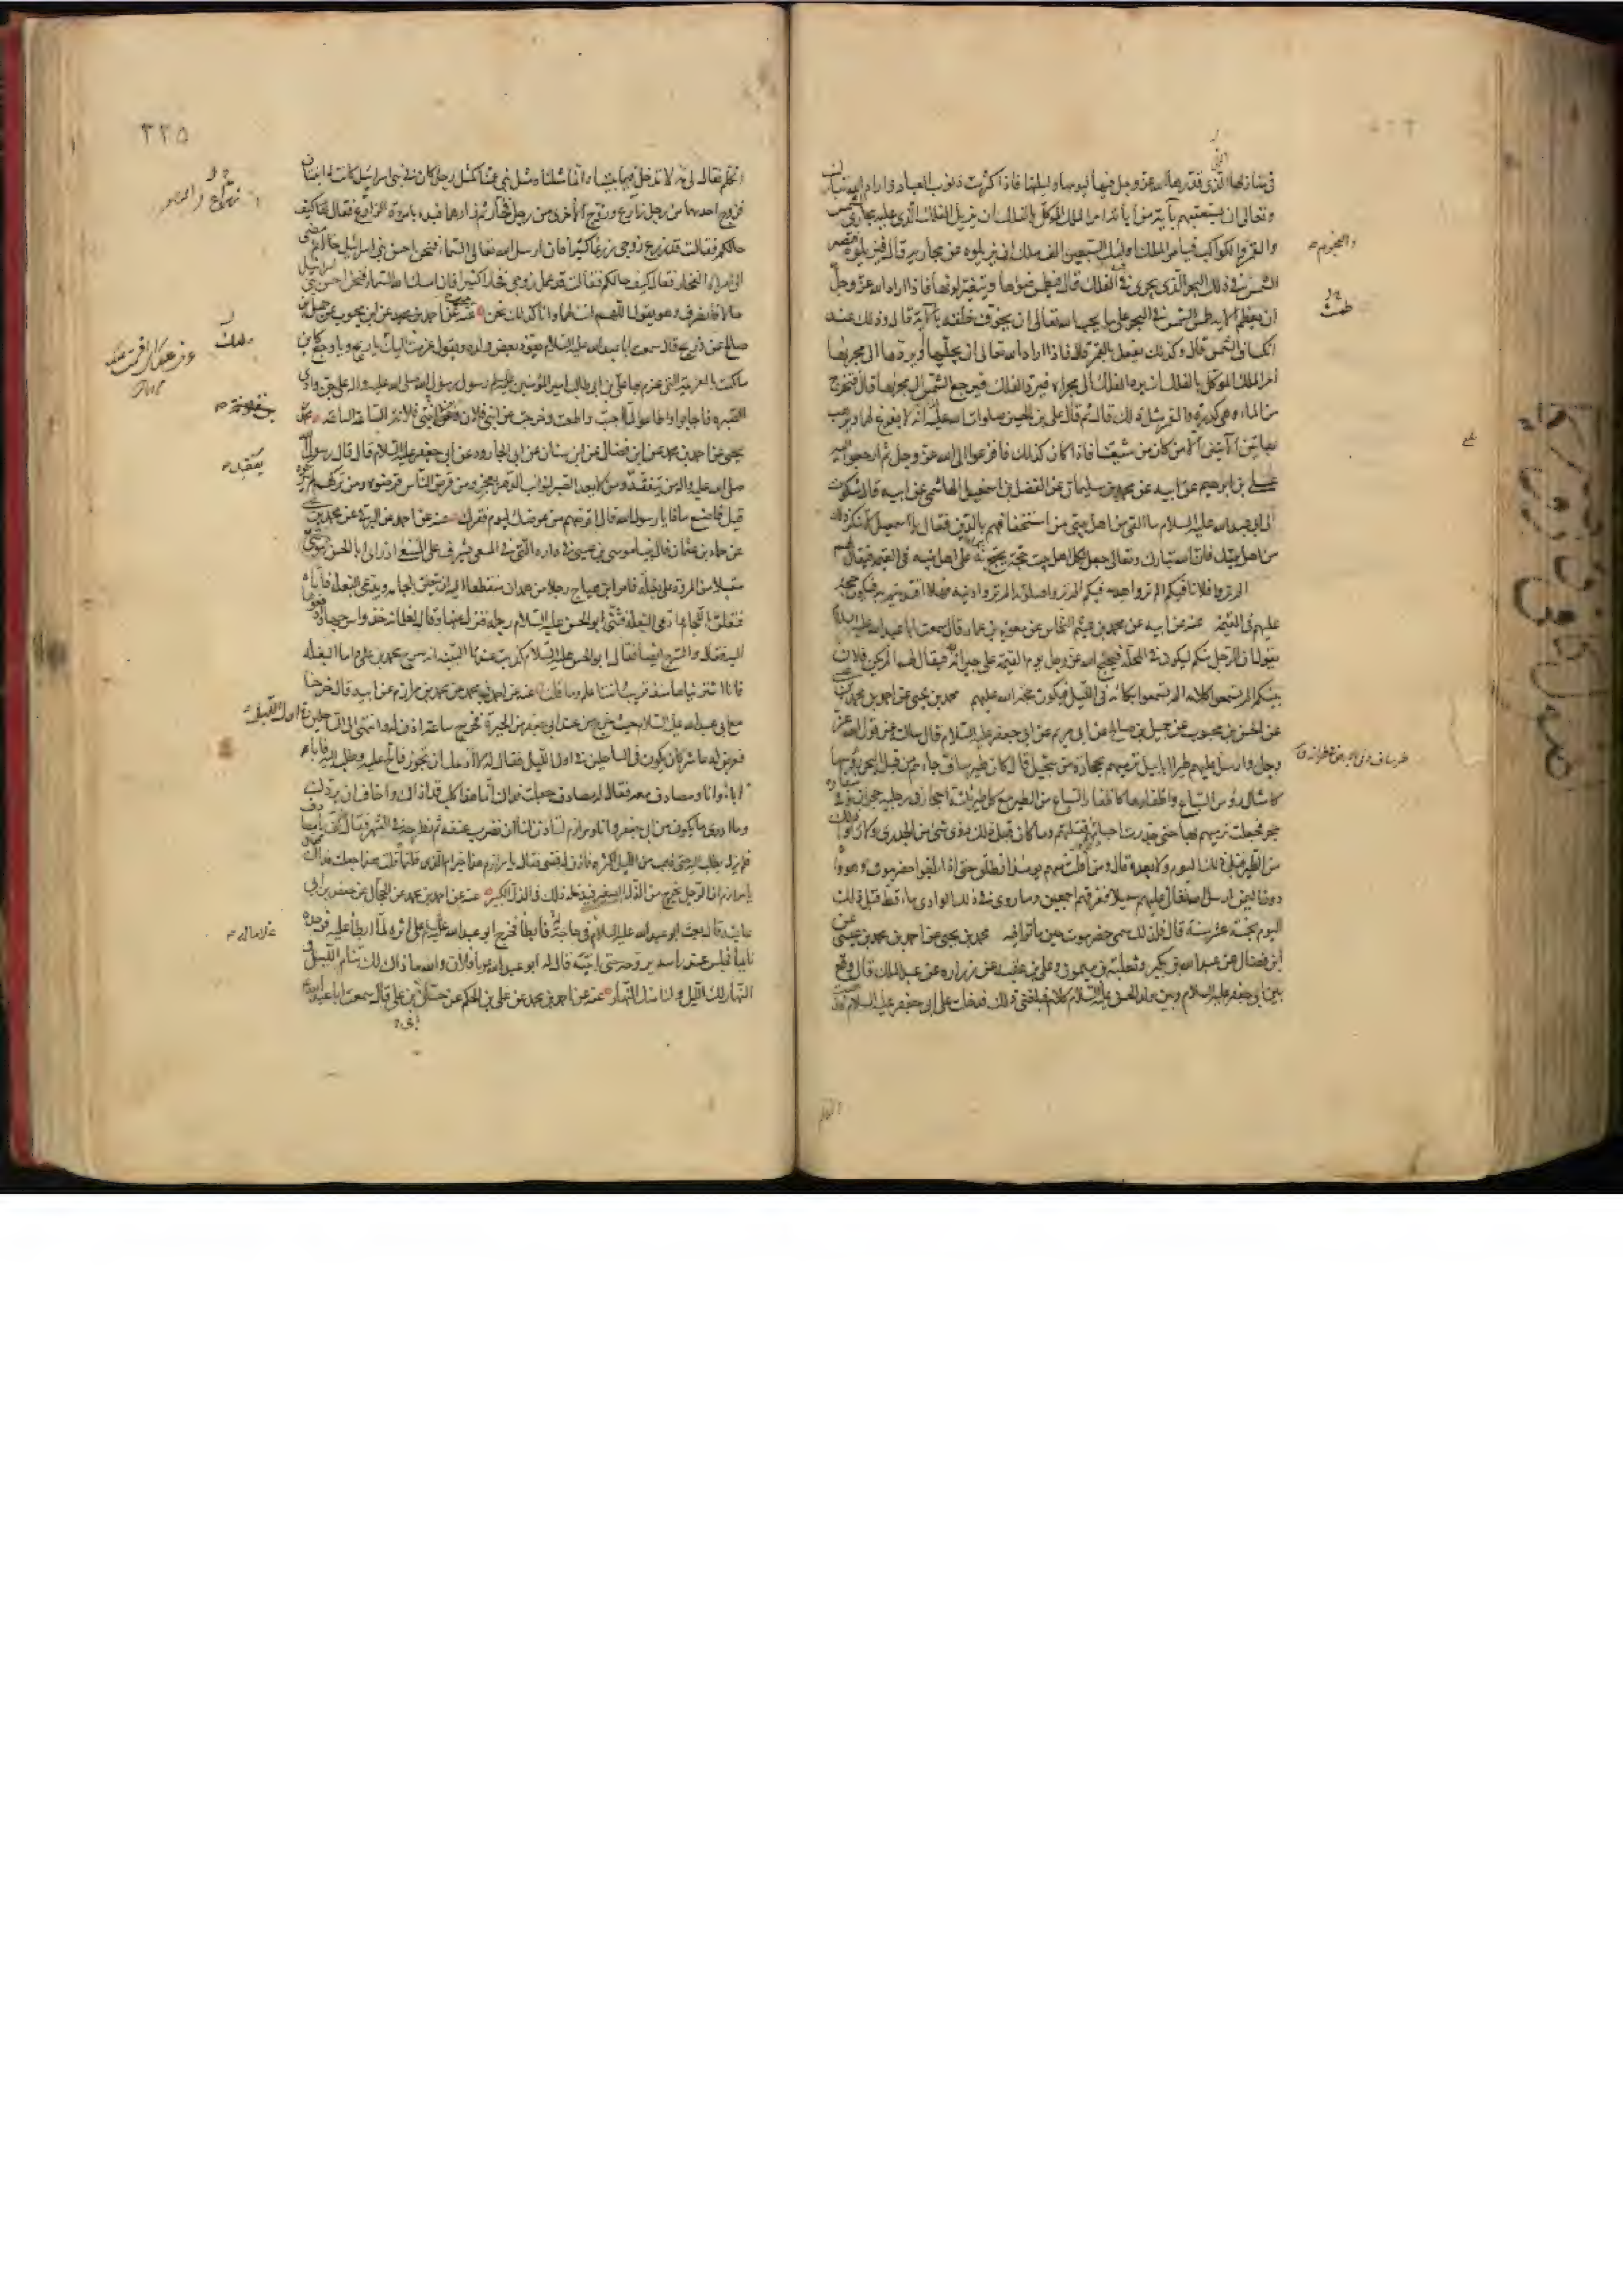 في منازلها الذي قدرها الله عز وجل فيها ليومها وليلتها فاذا كثرت ذنوب العباد واراد الله تبارك
وتعالى ان يستعتبهم بآية من آياته امر الملك الموكل بالفلك ان يزيل الفلك الذي عليه مجاري الشمس
والقمر والكواكب فيامر الملك اولئك السبعين الف ملك ان يزيلوه عن مجاريه قال فيزيلوه فتصير
الشمس في ذلك البحر الذي يجري في الفلك قال فيطمس ضوءها ويتغير لونها فاذا اراد الله عز وجل
ان يعظم الاية طمس الشمس في البحر على ما يحب الله تعالى ان يخوف خلقه بالآية قال وذلك عند
انكساف الشمس قال وكذلك يفعل بالقمر قال فاذا اراد الله تعالى ان يجليها ويردها الى مجريها
امر الملك الموكل بالفلك ان يرد الفلك الى مجراه فيرد الفلك فيرجع الشمس الى مجريها قال فتخرج
من الماء وهي كدرة والقمر مثل ذلك قال ثم قال علي بن الحسين صلوات الله عليه انه لا يفزع لهما ويرهب
بهاتين الآيتين الا من كان من شيعتنا فاذا كان كذلك فافزعوا الى الله عز وجل ثم ارجعوا اليه
علي بن ابراهيم عن ابيه عن محمد بن سليمان عن الفضل بن اسمعيل الهاشمي عن ابيه قال شكوت
الى ابي عبد الله عليه السلام ما القى من اهل بيتي من استخفافهم بالدين فقال يا اسمعيل لا تنكر ذلك
من اهل بيتك فان الله تبارك وتعالى جعل لكل اهل بيت حجة يحتج بها على اهل بيته في القيمة فيقال لهم
الم تروا فلانا فيكم الم تروا هديه فيكم الم تروا صلوته الم تروا دينه فهلا اقتديتم به فيكون حجة
عليهم في القيمة عنه عن ابيه عن محمد بن عثيم النخاس عن معوية بن عمار قال سمعت ابا عبد الله عليه السلام
يقول ان الرجل منكم ليكون في المحلة فيحتج الله عز وجل يوم القيمة على جيرانه فيقال لهم الم يكن فلان
بينكم الم تسمعوا كلامه الم تسمعوا بكائه في الليل فيكون حجة الله عليهم محمد بن يحيى عن احمد بن محمد بن عيسى
عن الحسن بن محبوب عن جميل بن صالح عن ابي مريم عن ابي جعفر عليه السلام قال سالت عن قول الله عز
وجل وارسل عليهم طيرا ابابيل ترميهم بحجارة من سجيل قال كان طير ساف جاءهم من قبل البحر رؤسها
كامثال رؤس السباع واظفارها كاظفار السباع من الطير مع كل طير ثلثة احجار في رجليه حجران وفي منقاره
حجر فجعلت ترميهم بها حتى جدرت اجسادهم فقتلهم وما كان قبل ذلك رؤى شئ من الجدري ولا راوا ذلك
من الطير قبل ذلك اليوم ولا بعده قال ومن افلت منهم يومئذ انطلق حتى اذا بلغوا حضرموت وهو واد
دون اليمن ارسل الله تعالى عليهم سيلا فغرقهم اجمعين وما روى في ذلك الوادي ماء قط قبل ذلك
اليوم بخمسة عشر سنة قال فلذلك سمى حضرموت حين ماتوا فيه محمد بن يحيى عن احمد بن محمد بن عيسى عن
ابن فضال عن عبد الله بن بكير وثعلبة بن ميمون وعلي بن عقبة عن زرارة عن عبد الملك قال وقع
بين ابي جعفر عليه السلام وبين ولد الحسن عليه السلام كلام فبلغني ذلك فدخلت على ابي جعفر عليه السلام فذهبت
والنجوم
طمست
٣٢٥
اتكلم فقال لي مه لا تدخل فيما بيننا وانما مثلنا ومثل بني عمنا كمثل رجل كان في بني اسرائيل كانت له ابنتان
فزوج احديهما من رجل زارع وزوج الاخرى من رجل فخار ثم زارهما فبدء بامرءة الزارع فقال لها كيف
حالكم فقالت قد زرع زوجي زرعا كثيرا فان ارسل الله تعالى السماء فنحن احسن بني اسرائيل حالا ثم مضى
الى امراة الفخار فقال كيف حالكم فقالت قد عمل زوجي فخارا كثيرا فان امسك الله السماء فنحن احسن بني اسرائيل
حالا فانصرف وهو يقول اللهم انت لهما وانا كذلك نحن عنه عن احمد بن محمد عن ابن محبوب عن جميل بن
صالح عن ذريح قال سمعت ابا عبد الله عليه السلام يعوذ بعض ولده ويقول عزمت اليك يا ريح ويا وجع كائنا
ما كنت بالعزيمة التي عزم بها علي بن ابي طالب امير المؤمنين عليه السلام رسول رسول الله صلى الله عليه واله على جن وادي
الصبرة فاجابوا واطاعوا لما اجبت واطعت وخرجت عن ابني فلان ابن ابنتي فلانة الساعة الساعة محمد بن
يحيى عن احمد بن محمد عن ابن فضال عن ابن سنان عن ابي الجارود عن ابي جعفر عليه السلام قال قال رسول الله
صلى الله عليه واله من يتفقد يفقد ومن لا يعد الصبر لنوائب الدهر يعجز ومن قرض الناس قرضوه ومن تركهم لم يتركوه
قيل فاصنع ماذا يا رسول الله قال اقرضهم من عرضك ليوم فقرك عنه عن احمد عن البرقي عن محمد بن يحيى
عن حماد بن عثمان قال بينا موسى بن عيسى في داره التي في المسعى يشرف على المسعى اذ راى ابا الحسن موسى
مقبلا من المروة على بغلة فامر ابن هياج رجلا من همدان منقطعا اليه ان يتعلق بلجامه ويدعي البغلة فاتاه
فتعلق باللجام وادعى البغلة فثنى ابو الحسن عليه السلام رجله فنزل عنها وقال لغلمانه خذوا سرجها وادفعوها
اليه فقال والسرج ايضا لي فقال ابو الحسن عليه السلام كذبت عندنا البينة انه سرج محمد بن علي واما البغلة
فانا اشتريناها منذ قريب وانت اعلم وما قلت عنه عن احمد بن محمد عن محمد بن مرازم عن ابيه قال خرجنا
مع ابي عبد الله عليه السلام حيث خرج من عند ابي جعفر من الحيرة فخرج ساعة اذن له وانتهى الى السالحين في اول الليل
فعرض له عاشر كان يكون في السالحين في اول الليل فقال له لا ادعك ان تجوز فالح عليه وطلب اليه فابى
اباء وانا ومصادف معه فقال له مصادف جعلت فداك انما هذا كلب قد اذاك واخاف ان يردك
وما ادري ما يكون من ابي جعفر وانا ومرازم اتاذن لنا ان نضرب عنقه ثم نطرحه في النهر فقال كف يا مصادف
فلم يزل يطلب اليه حتى ذهب من الليل اكثره فاذن له فمضى فقال يا مرازم هذا خير ام الذي قلتما قلت هذا جعلت فداك
يا مرازم ان الرجل يخرج من الذل الصغير فيدخله ذلك في الذل الكبير عنه عن احمد بن محمد عن الحجال عن حفص بن ابي
عايشة قال بعث ابو عبد الله عليه السلام غلاما له في حاجة فابطأ فخرج ابو عبد الله عليه السلام على اثره لما ابطأ عليه فوجده
نائما فجلس عند راسه يروحه حتى انتبه فقال له ابو عبد الله يا فلان والله ما ذاك لك تنام الليل و
النهار لك الليل ولنا منك النهار عنه عن احمد بن محمد عن علي بن الحكم عن حسان بن علي قال سمعت ابا عبد الله